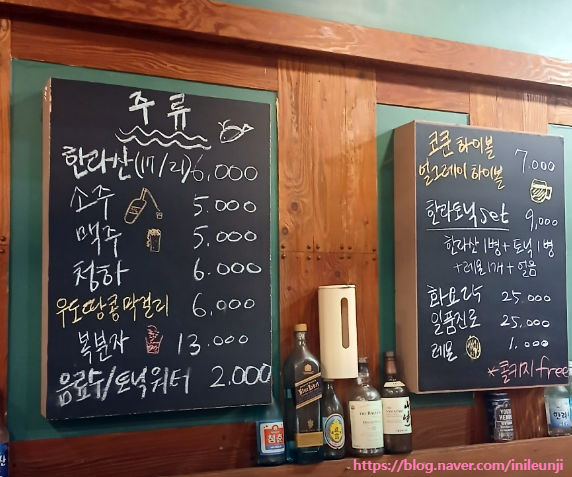 주류
한라산(17/21) 6,000
소주 5.000
맥주 5.000
청하 6.000
우도땅콩막걸리 6,000
복분자 13.000
음료수/토닉워터 2.000
하이볼
얼그레이 하이볼 7.000
한라토닉 set 9,000
한라산 1병 + 토닉 1병
+ 레몬 1개 + 얼음
화요 25.000
일품진로 25,000
레몬 1.000
*콜키지 free
https://blog.naver.com/inileunji